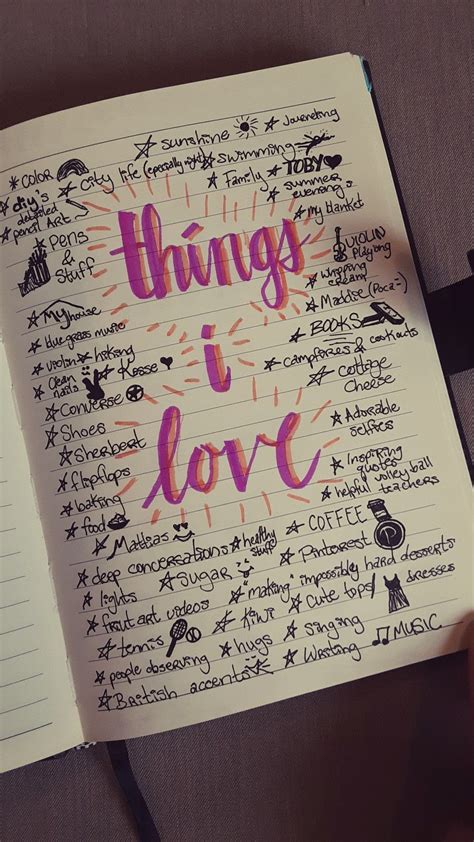 sunshine
Journeling
COLOR
City life (especially night)
Swimming
diy's
Family
TOBY
detailed
pencil Art
summer
evenings
my blanket
Pens
&
Stuff
things
VIOLIN
Playing
Whipping
cream
My house
Maddie (Poca-)
blue grass music
i
BOOKS
violin
hiking
campfires & cookouts
Clean
nails
Kosse
cottage
Cheese
Converse
Shoes
love
Adorable
selfies
Sherbert
flipflops
Inspiring
quotes
volley ball
baking
helpful teachers
food
COFFEE
Mattias
deep conversations
healthy
stuff
Pinterest
Sugar
making "impossibly hard desserts
lights
Cute tops/
dresses
fruit art videos
Kiwi
tennis
hugs
Singing
MUSIC
people observing
Writing
British accents